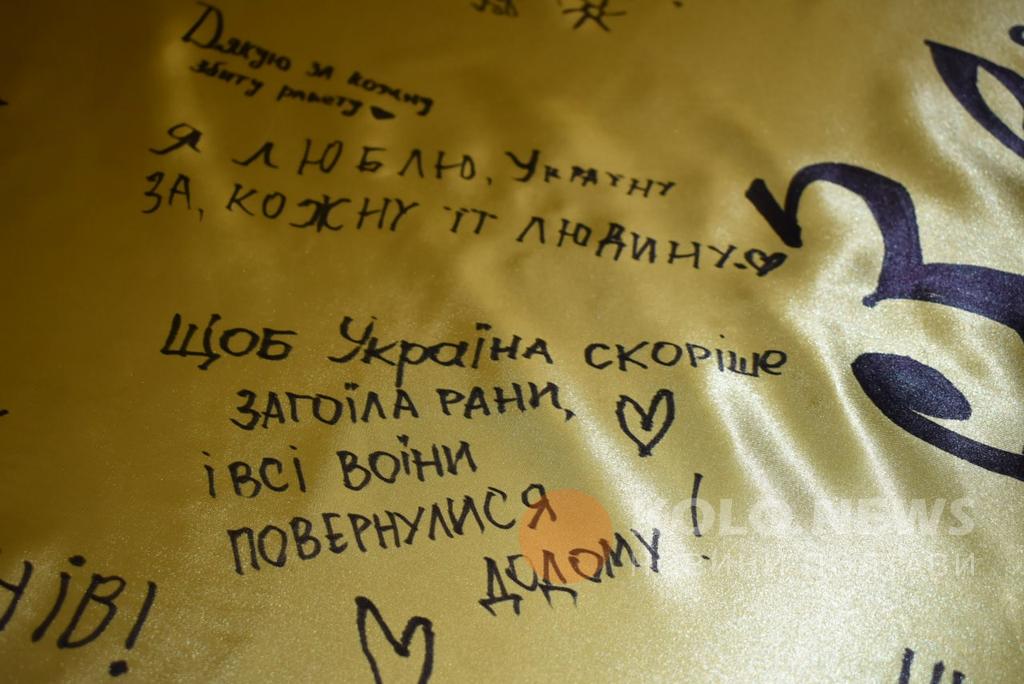 Дякую за кожну
збиту ракету
Я ЛЮБЛЮ, УКРАЇНУ
ЗА, КОЖНУ ЇЇ ЛЮДИНУ.
ЩОБ Україна СКОРІШЕ
ЗАГОЇЛА РАНИ,
І ВСІ ВОЇНИ
ПОВЕРНУЛИСЯ
ДОДОМУ!
KOLO.NEWS
НОВИНИ ПОЛТАВИ